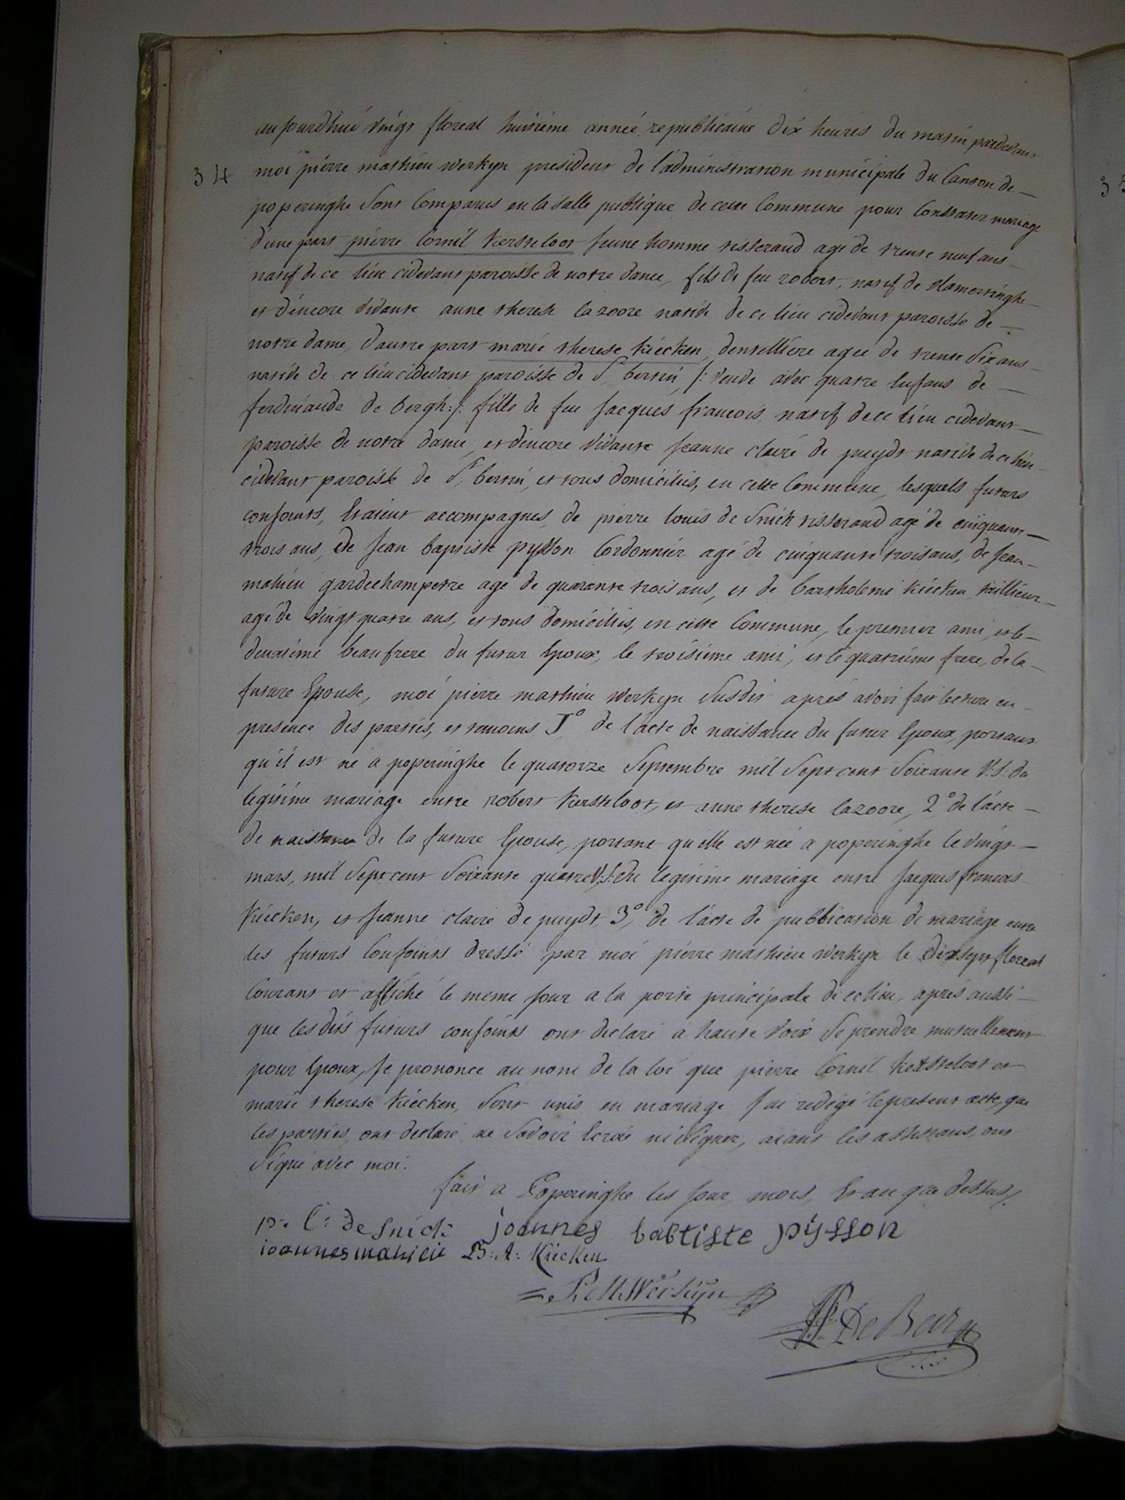 aujourdhui vingt floreal huitieme année republicaine dix heures du matin pardevant
34 moi pierre mathieu werkyn president de l'administration municipale du Canton de
poperinghe sont comparus en la salle publique de cette Commune pour Constater mariage
d'une part pierre Cornil Kersteloot jeune homme tisserand agé de trente neuf ans
natif de ce lieu cidevant paroisse de notre dame, fils de feu robert, natif de vlamertinghe
et d'encore vivante anne therese lazoore native de ce lieu cidevant paroisse de
notre dame, d'autre part marie therese Kiecken, dentelliere agée de trente six ans
native de ce lieu cidevant paroisse de St bertin, /: veuve avec quatre Enfans de
ferdinande de bergh :/ fille de feu jacques francois, natif de ce lieu cidevant
paroisse de notre dame, et d'encore vivante jeanne claire de puydt native de ce lieu
cidevant paroisse de St bertin, et tous domiciliés, en cette Commune, lesquels futurs
conjoints, Etaient accompagnés, de pierre louis de Snick tisserand agé de cinquante
trois ans, de jean baptiste pysson Cordonnier agé de cinquante trois ans, de jean
mahieu gardechampetre agé de quarante trois ans, et de bartholomé Kiecken taillieur
agé de vingt quatre ans, et tous domiciliés, en cette Commune, le premier ami, et le
deuxiéme beaufrere du futur Epoux, le troisiéme ami, et le quatriéme frere, de la
future Epouse, moi pierre mathieu werkyn susdit aprés avoir fait lecture en
presence des parties, et temoins 1° de l'acte de naissance du futur Epoux, portant
qu'il est né a poperinghe le quatorze Septembre mil Sept cent Soixante V.S. du
legitime mariage entre robert Kersteloot, et anne therese lazoore, 2° de l'acte
de naissance de la future Epouse, portant qu'elle est née a poperinghe le vingt
mars, mil Sept cent Soixante quatre V.S. du legitime mariage entre jacques francois
Kiecken, et jeanne claire de puydt, 3° de l'acte de publication de mariage entre
les futurs Conjoints dressé par moi pierre mathieu werkyn le dixsept floreal
Courant et affiché le meme jour a la porte principale de ce lieu, aprés aussi
que lesdits futurs conjoints ont declaré a haute voix se prendre mutuellement
pour Epoux, je prononce au nom de la loi que pierre Cornil Kersteloot et
marie therese Kiecken, sont unis en mariage j'ai redigé le present acte, que
les parties, ont declaré ne savoir Ecrire ni signer, aiant les assistans, ont
signé avec moi.
fait a Poperinghe les jour, mois, Et an que dessus./.
pre L: de Snick joannes babtiste pysson
ioannes mahieu B: A: Kiecken
P. M. Werkyn
De Baer